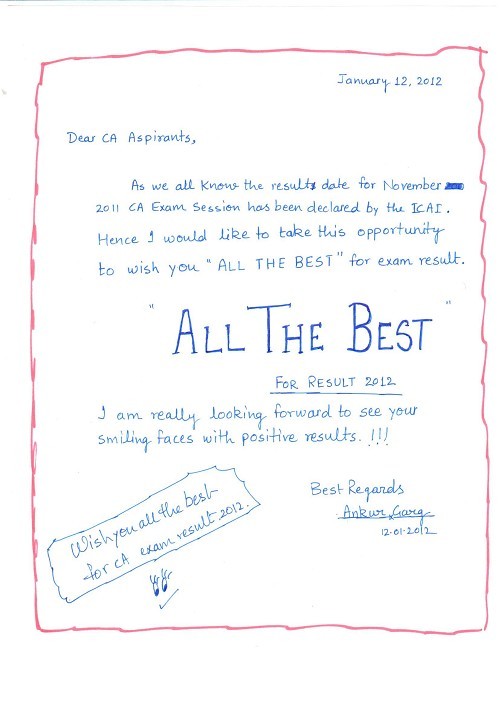 January 12, 2012
Dear CA Aspirants,
As we all know the results date for November
2011 CA Exam Session has been declared by the ICAI.
Hence I would like to take this opportunity
to wish you "ALL THE BEST" for exam result.
"ALL THE BEST"
FOR RESULT 2012
I am really looking forward to see your
smiling faces with positive results. !!!
Best Regards
Ankur Garg
12-01-2012
Wish you all the best
for CA exam result 2012.